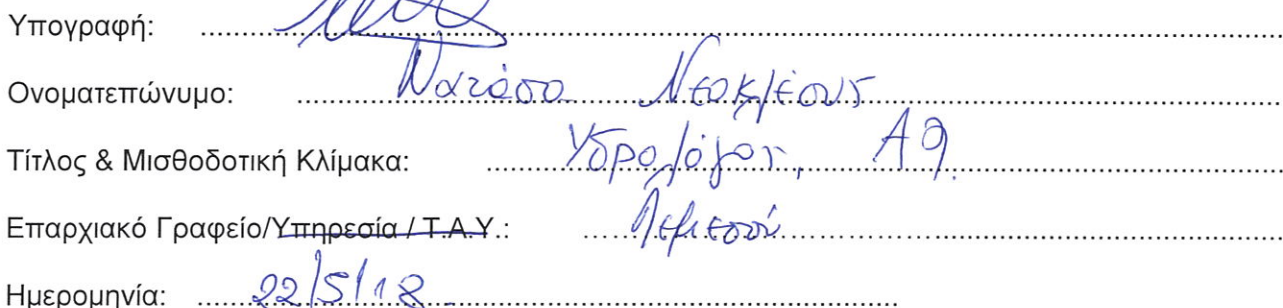 Υπογραφή: ....................
Ονοματεπώνυμο: Νατάσα Νεοκλέους
Τίτλος & Μισθοδοτική Κλίμακα: Υδρολόγος, Α9.
Επαρχιακό Γραφείο/Υπηρεσία / Τ.Α.Υ.: Λεμεσού
Ημερομηνία: 22/5/18